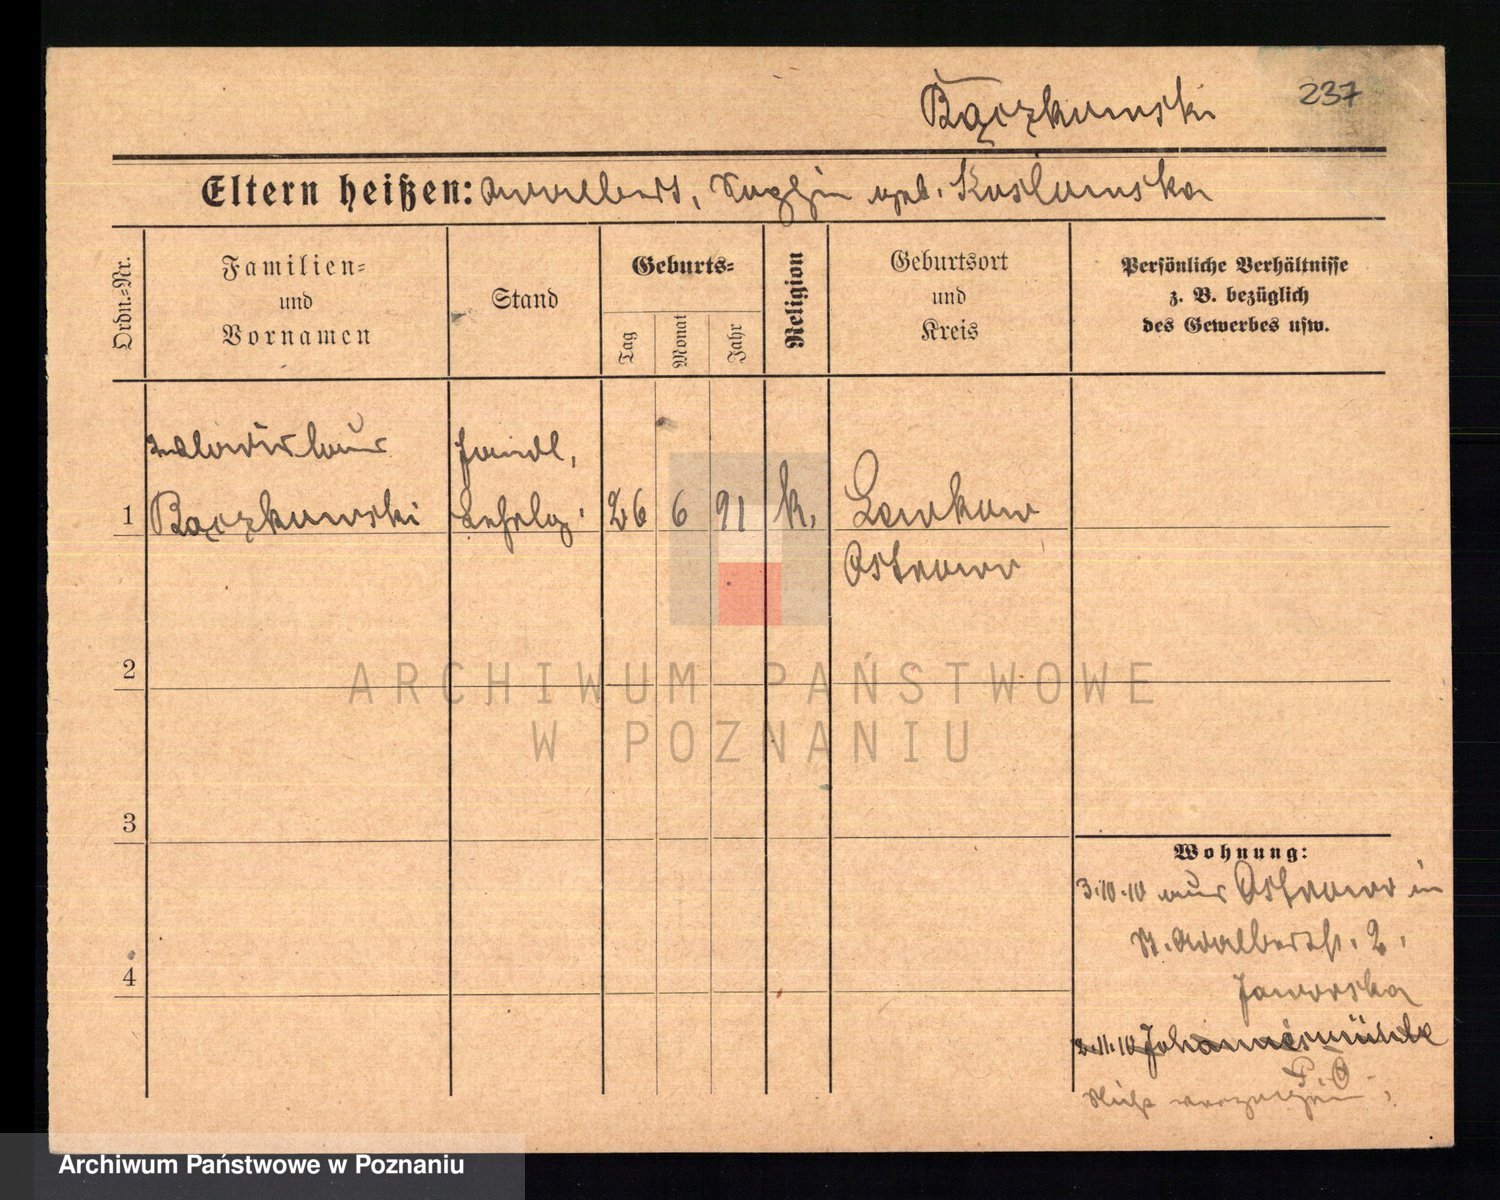 Bączkowski
237
Eltern heißen: Adalbert, Sophie geb. Koslowska
Ordn.-Nr.
Familien-
und
Vornamen
Stand
Geburts-
Tag
Monat
Jahr
Religion
Geburtsort
und
Kreis
Persönliche Verhältnisse
z. B. bezüglich
des Gewerbes usw.
Wladislaus
Bączkowski
Handl.
Lehrlg.
1
26
6
91
k.
Lewkow
Ostrowo
2
3
4
Wohnung:
3.10.10 aus Ostrowo in
St. Adalbertstr. 2.
Jaworska
2.11.10 Johannesmühle
Nicht verzogen
ARCHIWUM PAŃSTWOWE
W POZNANIU
Archiwum Państwowe w Poznaniu